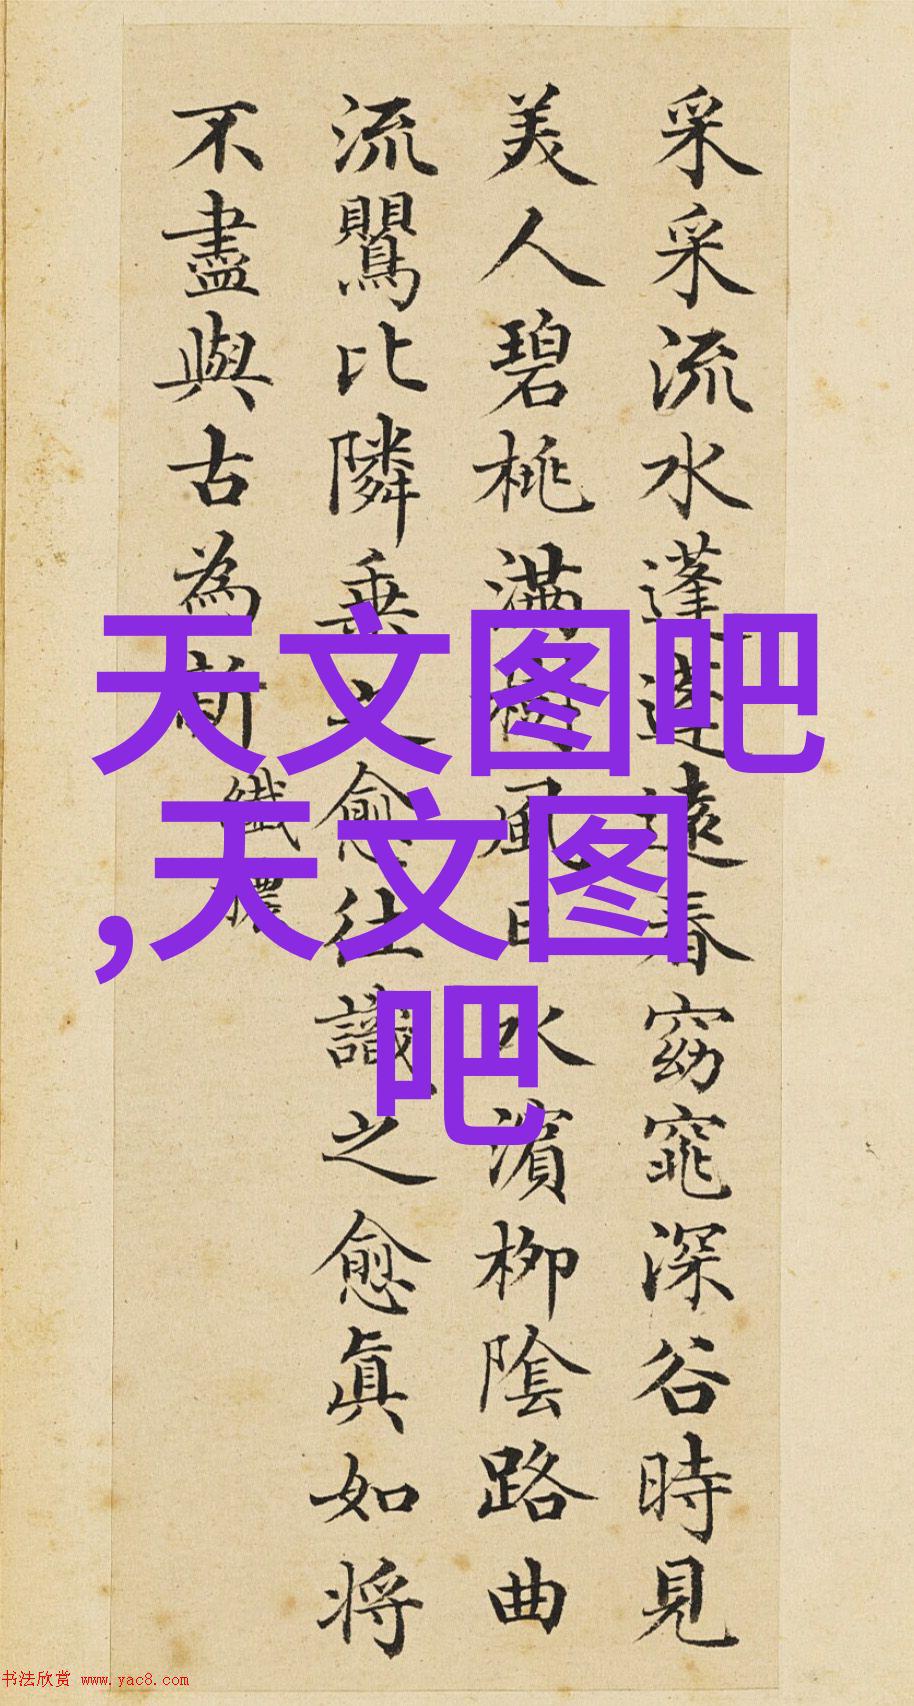 采采流水蓬蓬遠春窈窕深谷時見
美人碧桃滿樹風日水濱柳隂路曲
流鸎比隣乗之愈往識之愈眞如将
不盡與古為新
纖穠
天文图吧
,天文图
吧
书法欣赏 www.yac8.com